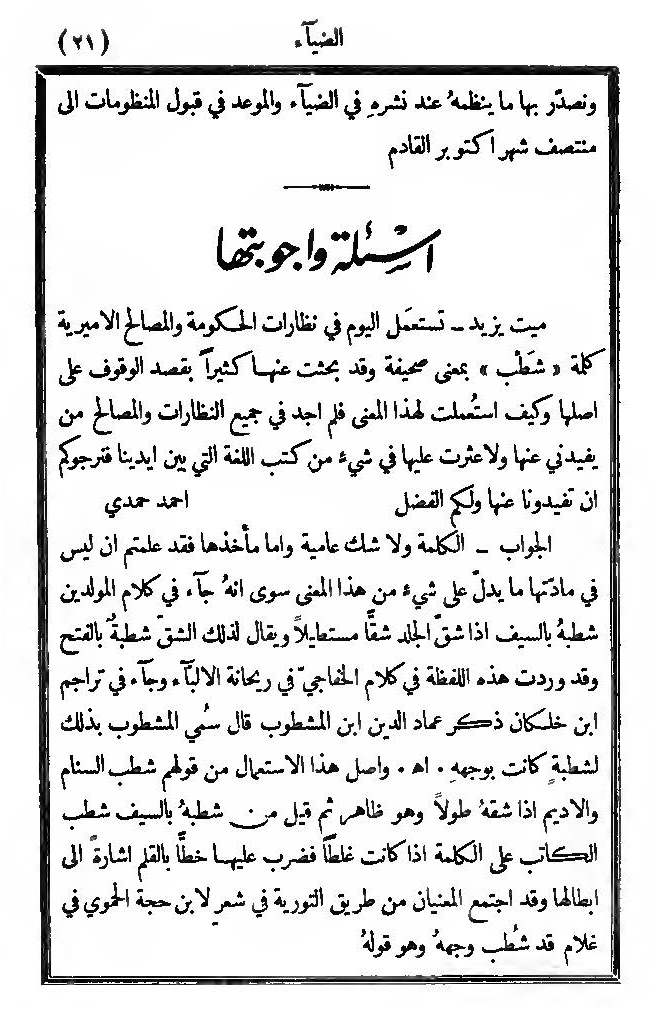 الضيآء
(٢١)
ونصدّر بها ما ينظمهُ عند نشرهِ في الضيآء والموعد في قبول المنظومات الى
منتصف شهر اكتوبر القادم
اسئلة واجوبتها
ميت يزيد – تستعمَل اليوم في نظارات الحكومة والمصالح الاميرية
كلمة « شَطْب » بمعنى صحيفة وقد بحثت عنها كثيراً بقصد الوقوف على
اصلها وكيف استُعملت لهذا المعنى فلم اجد في جميع النظارات والمصالح من
يفيدني عنها ولا عثرت عليها في شيء من كتب اللغة التي بين ايدينا فنرجوكم
ان تفيدونا عنها ولكم الفضل احمد حمدي
الجواب – الكلمة ولا شك عامية واما مأخذها فقد علمتم ان ليس
في مادّتها ما يدلّ على شيء من هذا المعنى سوى انهُ جآء في كلام المولدين
شطبهُ بالسيف اذا شقّ الجلد شقًّا مستطيلاً ويقال لذلك الشقّ شطبةٌ بالفتح
وقد وردت هذه اللفظة في كلام الخفاجيّ في ريحانة الالبآء وجآء في تراجم
ابن خلكان ذكر عماد الدين ابن المشطوب قال سُمي المشطوب بذلك
لشطبةٍ كانت بوجههِ . اه . واصل هذا الاستعمال من قولهم شطب السنام
والاديم اذا شقهُ طولاً وهو ظاهر ثم قيل من شطبهُ بالسيف شطب
الكاتب على الكلمة اذا كانت غلطاً فضرب عليها خطًّا بالقلم اشارةً الى
ابطالها وقد اجتمع المعنيان من طريق التورية في شعرٍ لابن حجة الحموي في
غلام قد شُطب وجههُ وهو قولهُ